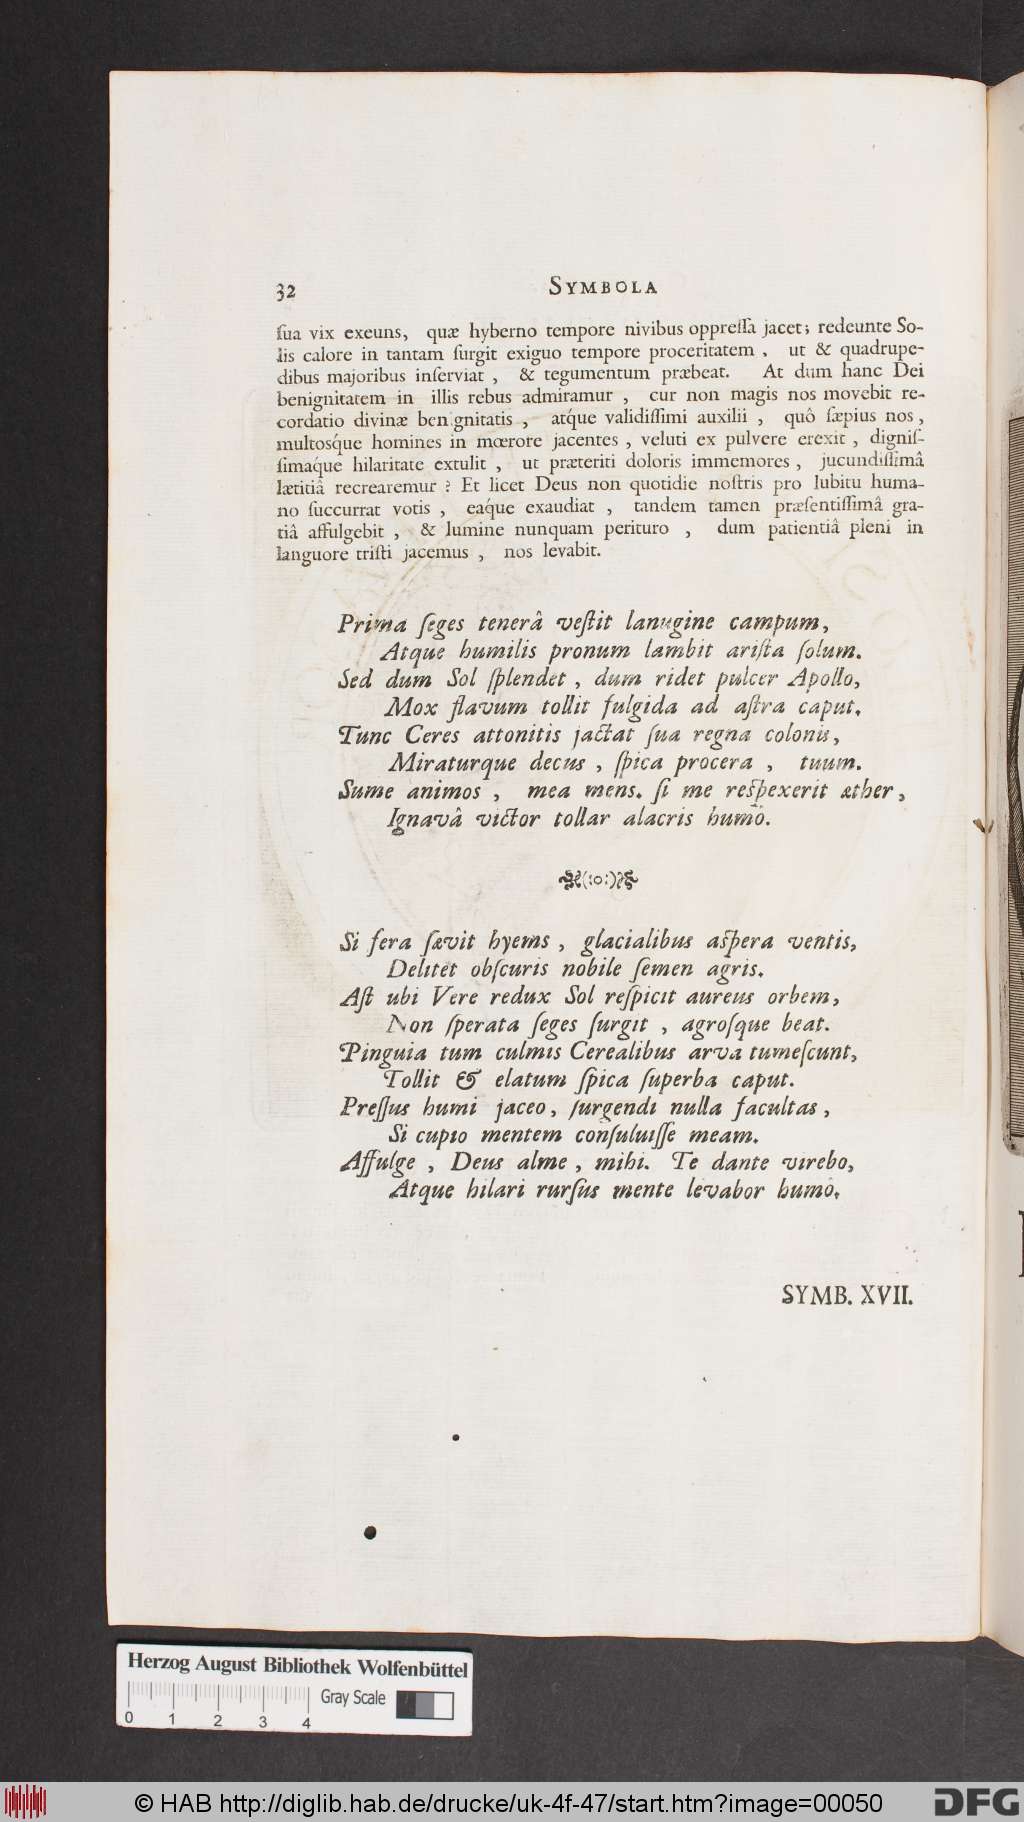 32 SYMBOLA
ſua vix exeuns, quæ hyberno tempore nivibus oppreſſa jacet; redeunte So-
lis calore in tantam ſurgit exiguo tempore proceritatem, ut & quadrupe-
dibus majoribus inſerviat, & tegumentum præbeat. At dum hanc Dei
benignitatem in illis rebus admiramur, cur non magis nos movebit re-
cordatio divinæ benignitatis, atq́ue validiſſimi auxilii, quô ſæpius nos,
multosq́ue homines in mœrore jacentes, veluti ex pulvere erexit, digniſ-
ſimaq́ue hilaritate extulit, ut præteriti doloris immemores, jucundiſſimâ
lætitiâ recrearemur? Et licet Deus non quotidie noſtris pro lubitu huma-
no ſuccurrat votis, eaq́ue exaudiat, tandem tamen præſentiſſimâ gra-
tiâ affulgebit, & lumine nunquam perituro, dum patientiâ pleni in
languore triſti jacemus, nos levabit.
Prima ſeges tenerâ veſtit lanugine campum,
Atque humilis pronum lambit ariſta ſolum.
Sed dum Sol ſplendet, dum ridet pulcer Apollo,
Mox flavum tollit fulgida ad aſtra caput.
Tunc Ceres attonitis jactat ſua regna colonis,
Miraturque decus, ſpica procera, tuum.
Sume animos, mea mens. ſi me reſpexerit æther,
Ignavâ victor tollar alacris humô.
(:o:)
Si fera ſævit hyems, glacialibus aſpera ventis,
Delitet obſcuris nobile ſemen agris.
Aſt ubi Vere redux Sol reſpicit aureus orbem,
Non ſperata ſeges ſurgit, agroſque beat.
Pinguia tum culmis Cerealibus arva tumeſcunt,
Tollit & elatum ſpica ſuperba caput.
Preſſus humi jaceo, ſurgendi nulla facultas,
Si cupio mentem conſuluiſſe meam.
Affulge, Deus alme, mihi. Te dante virebo,
Atque hilari rurſus mente levabor humô.
SYMB. XVII.
Herzog August Bibliothek Wolfenbüttel
Gray Scale
0 1 2 3 4
© HAB http://diglib.hab.de/drucke/uk-4f-47/start.htm?image=00050
DFG